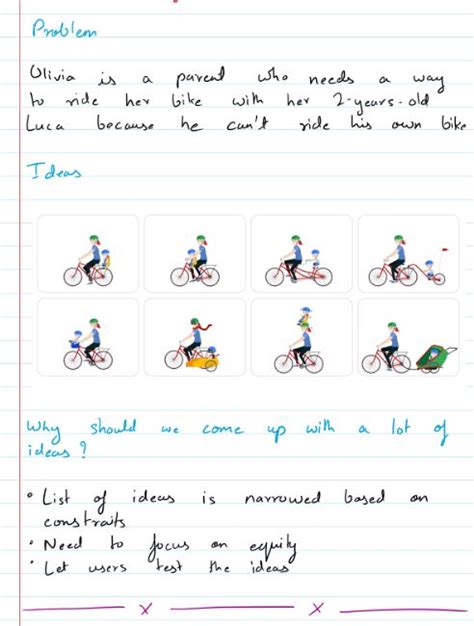 Problem
Olivia is a parent who needs a way
to ride her bike with her 2-years-old
Luca because he can't ride his own bike
Ideas
Why should we come up with a lot of
ideas?
• List of ideas is narrowed based on
constraits
• Need to focus on equity
• Let users test the ideas
x x